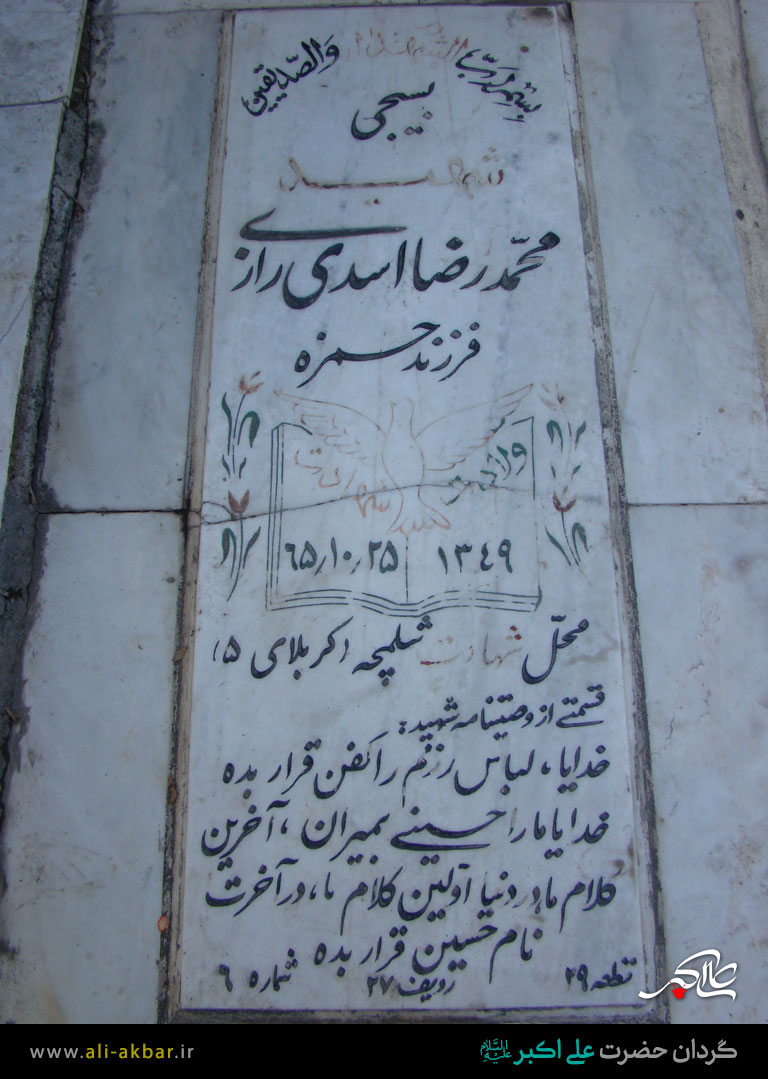 بسم رب الشهداء والصدیقین
بسیجی
شهید
محمد رضا اسدی رازی
فرزند حمزه
ولادت شهادت
۱۳۴۹ ۶۵/۱۰/۲۵
محلّ شهادت شلمچه (کربلای ۵)
قسمتی از وصیتنامه شهید:
خدایا، لباس رزمم را کفن قرار بده
خدایا ما را حسینی بمیران، آخرین
کلام ما در دنیا اولین کلام ما، در آخرت
نام حسین قرار بده
قطعه ۲۹ ردیف ۲۷ شماره ۶
علی اکبر
گردان حضرت علی اکبر علیه السلام
www.ali-akbar.ir